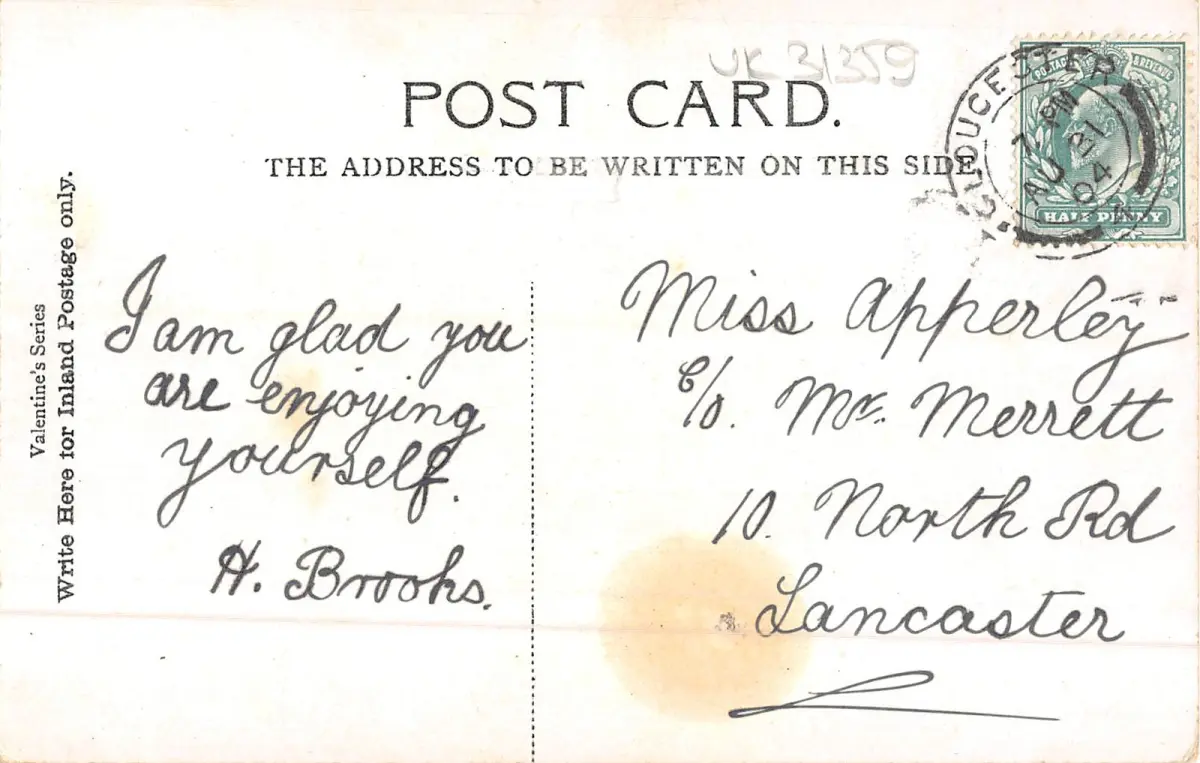 UK 31359
POST CARD.
THE ADDRESS TO BE WRITTEN ON THIS SIDE.
Valentine's Series
Write Here for Inland Postage only.
GLOUCESTER
7 PM
AU 21
04
POSTAGE & REVENUE
HALF PENNY
I am glad you
are enjoying
yourself.
H. Brooks.
Miss Apperley
c/o. Mr. Merrett
10. North Rd
Lancaster